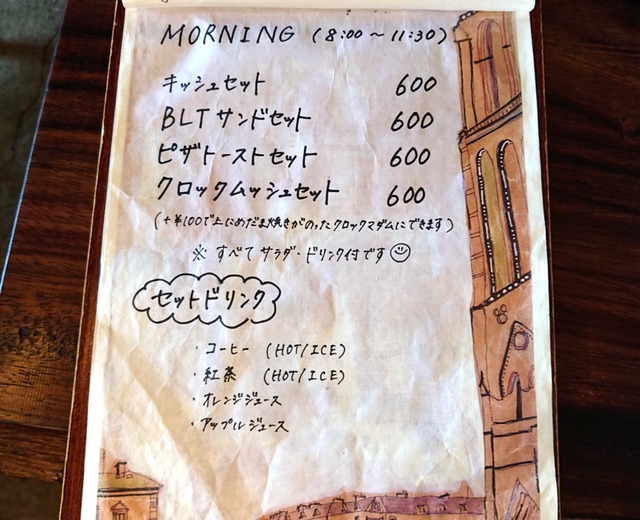 MORNING (8:00〜11:30)
キッシュセット 600
BLTサンドセット 600
ピザトーストセット 600
クロックムッシュセット 600
(+¥100で上にめだま焼きがのったクロックマダムにできます)
※ すべてサラダ・ドリンク付です☺
セットドリンク
・コーヒー (HOT/ICE)
・紅茶 (HOT/ICE)
・オレンジジュース
・アップルジュース